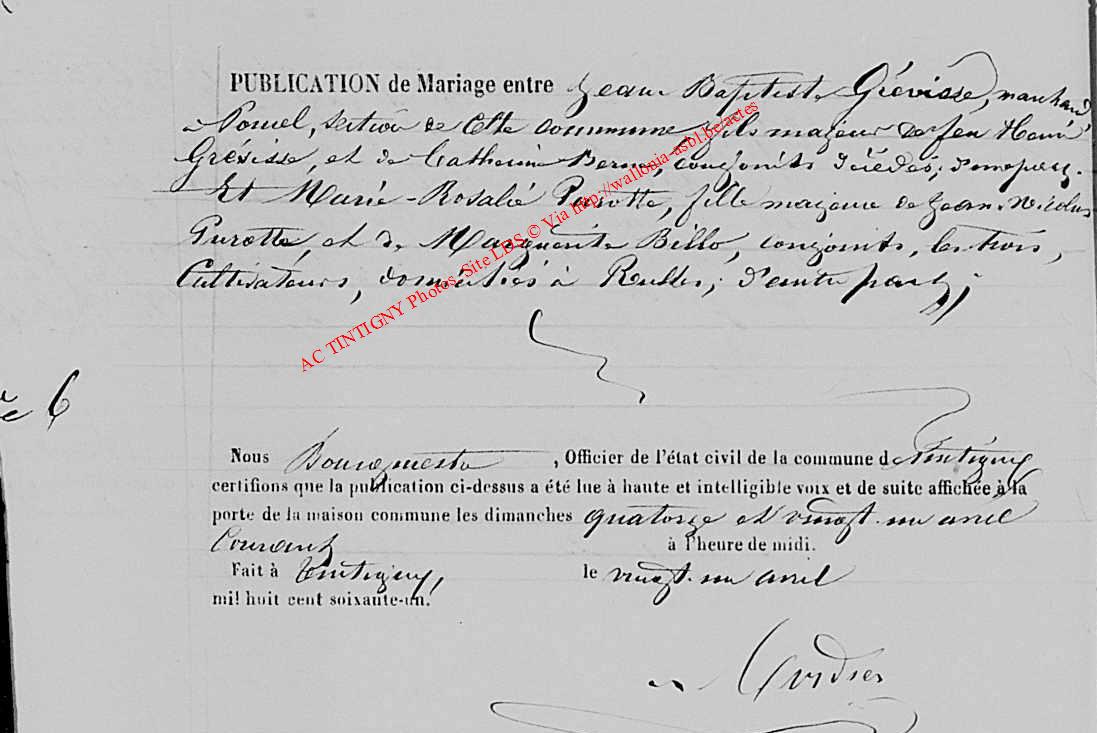 PUBLICATION de Mariage entre Jean Baptiste Grévisse, marchand
à Poncel, section de Cette commune, fils majeur de feu Henri
Grévisse, et de Catherine conjoints décédés, d'une part.
Et Marie-Rosalie Purotte, fille majeure de Jean-Nicolas
Purotte, et de Marguerite Billo, conjoints, les trois,
Cultivateurs, domiciliés à Rulles, d'autre part,
6
Nous Bourgmestre , Officier de l'état civil de la commune de Tintigny
certifions que la publication ci-dessus a été lue à haute et intelligible voix et de suite affichée à la
porte de la maison commune les dimanches quatorze et vingt-un avril
Courant à l'heure de midi.
Fait à Tintigny, le vingt-un avril
mil huit cent soixante-un.
AC TINTIGNY Photos Site LDS © Via http://wallonia-asbl.be/actes